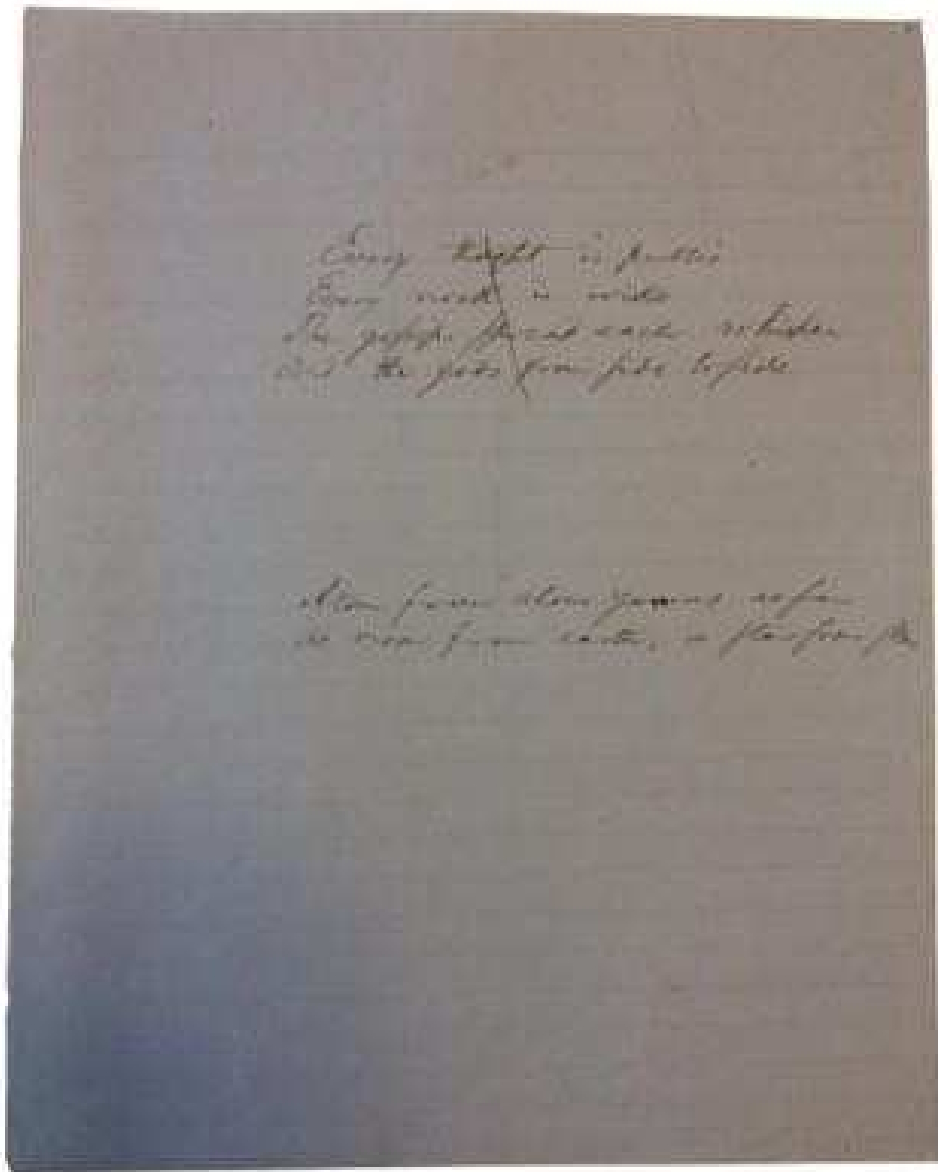 Every thought is public
Every nook is wide
The gossips spread each whisper
And the gods from side to side
Atom from atom yawns as far
As moon from earth, or star from star